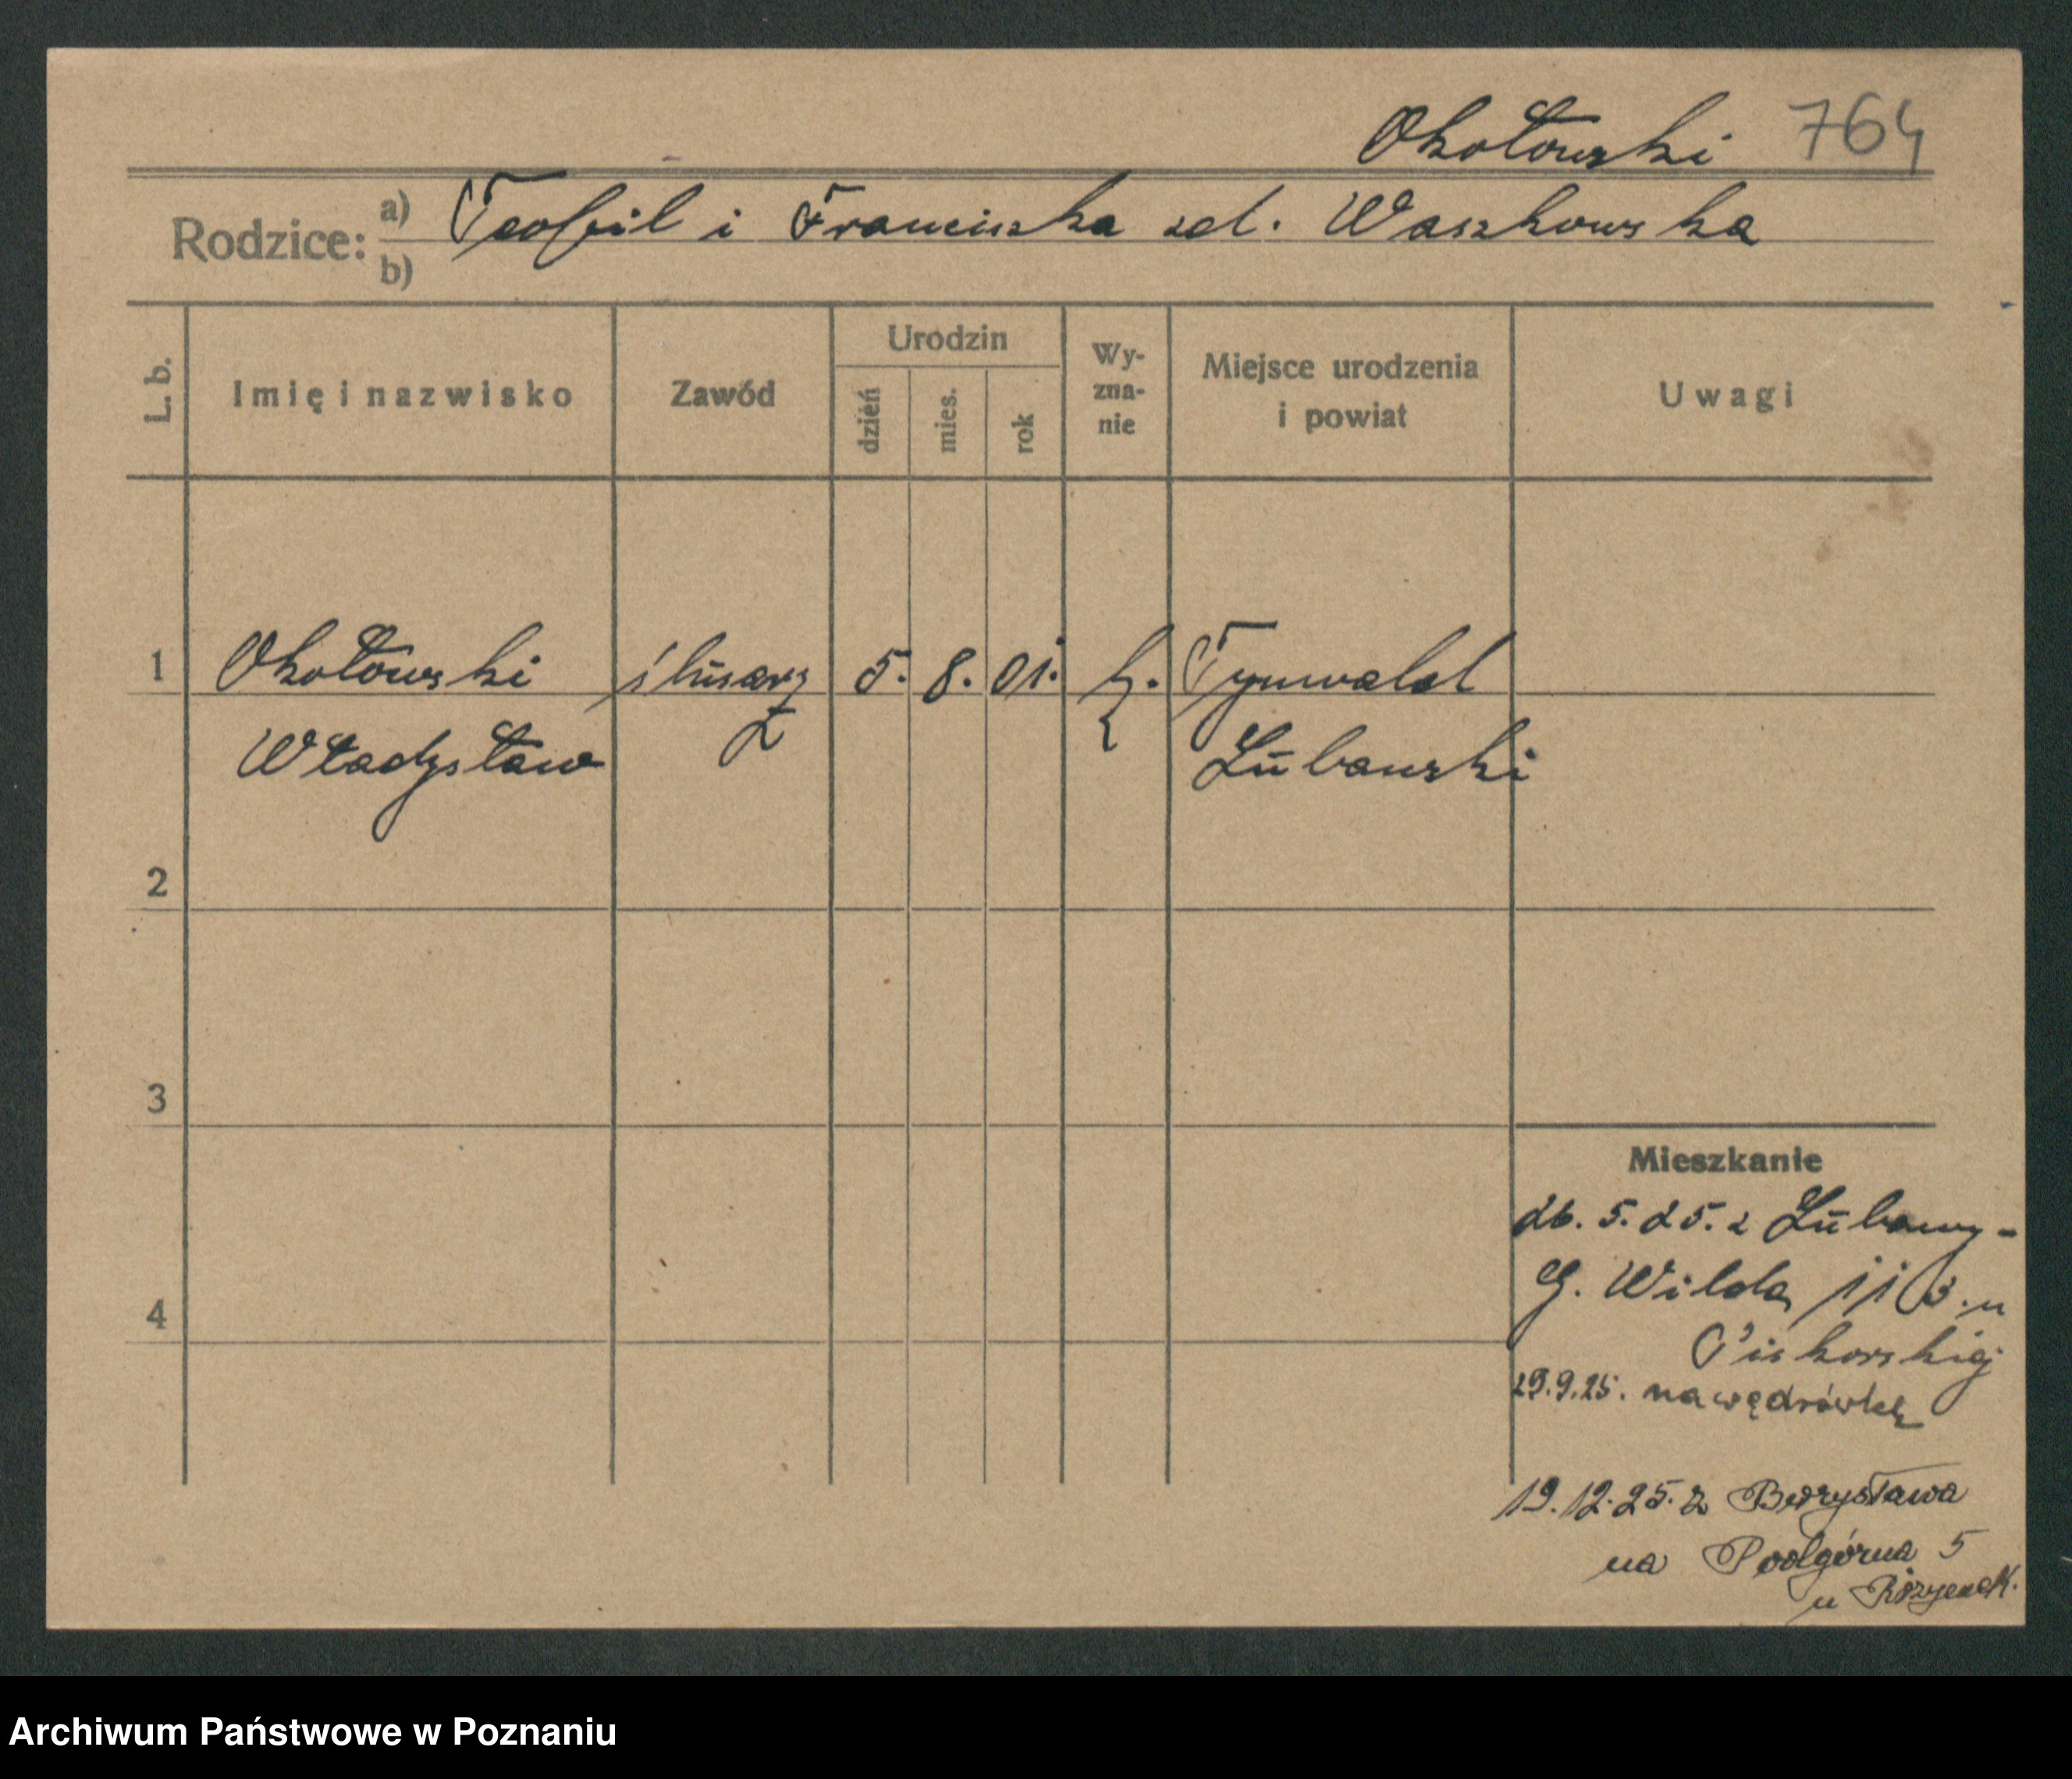 Okołowski 764
Rodzice: a) Teofil i Franciszka zd. Waszkowska
b)
L. b. Imię i nazwisko Zawód Urodzin dzień mies. rok Wy-zna-nie Miejsce urodzenia i powiat Uwagi
1 Okołowski ślusarz 5. 8. 01. k. Tynwald
Władysław Lubawski
2
3
4
Mieszkanie
26. 5. 25. z Lubawy -
G. Wilda 116. u
Piskorskiej
29.9.25. na wędrówkę
19.12.25. z
na Podgórna 5
u
Archiwum Państwowe w Poznaniu